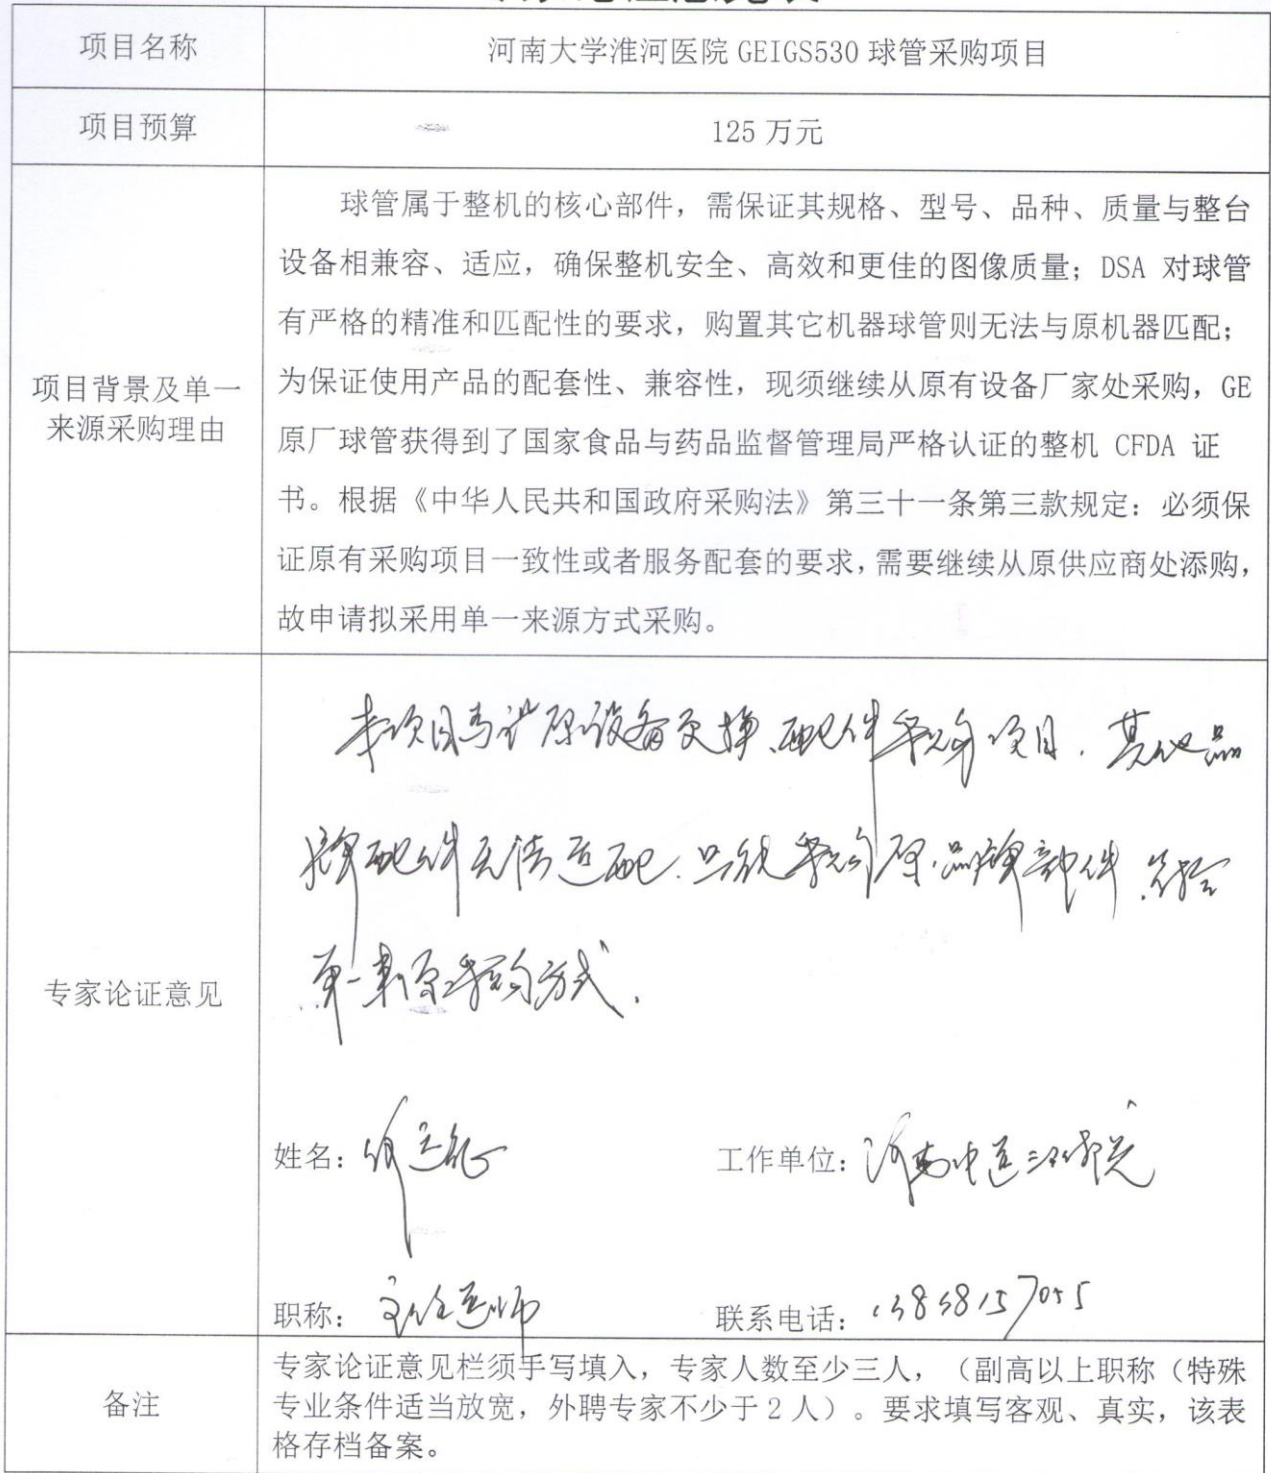 项目名称 河南大学淮河医院 GEIGS530 球管采购项目
项目预算 125 万元
项目背景及单一
来源采购理由
球管属于整机的核心部件，需保证其规格、型号、品种、质量与整台
设备相兼容、适应，确保整机安全、高效和更佳的图像质量；DSA 对球管
有严格的精准和匹配性的要求，购置其它机器球管则无法与原机器匹配；
为保证使用产品的配套性、兼容性，现须继续从原有设备厂家处采购，GE
原厂球管获得到了国家食品与药品监督管理局严格认证的整机 CFDA 证
书。根据《中华人民共和国政府采购法》第三十一条第三款规定：必须保
证原有采购项目一致性或者服务配套的要求，需要继续从原供应商处添购，
故申请拟采用单一来源方式采购。
专家论证意见
本项目为 原设备更换配件采购项目. 其他品
牌配件无法适配. 只能采购原品牌部件. 符合
单一来源采购方式.
姓名： 工作单位： 河南中医
职称： 主任医师 联系电话：
备注
专家论证意见栏须手写填入，专家人数至少三人，（副高以上职称（特殊
专业条件适当放宽，外聘专家不少于 2 人）。要求填写客观、真实，该表
格存档备案。